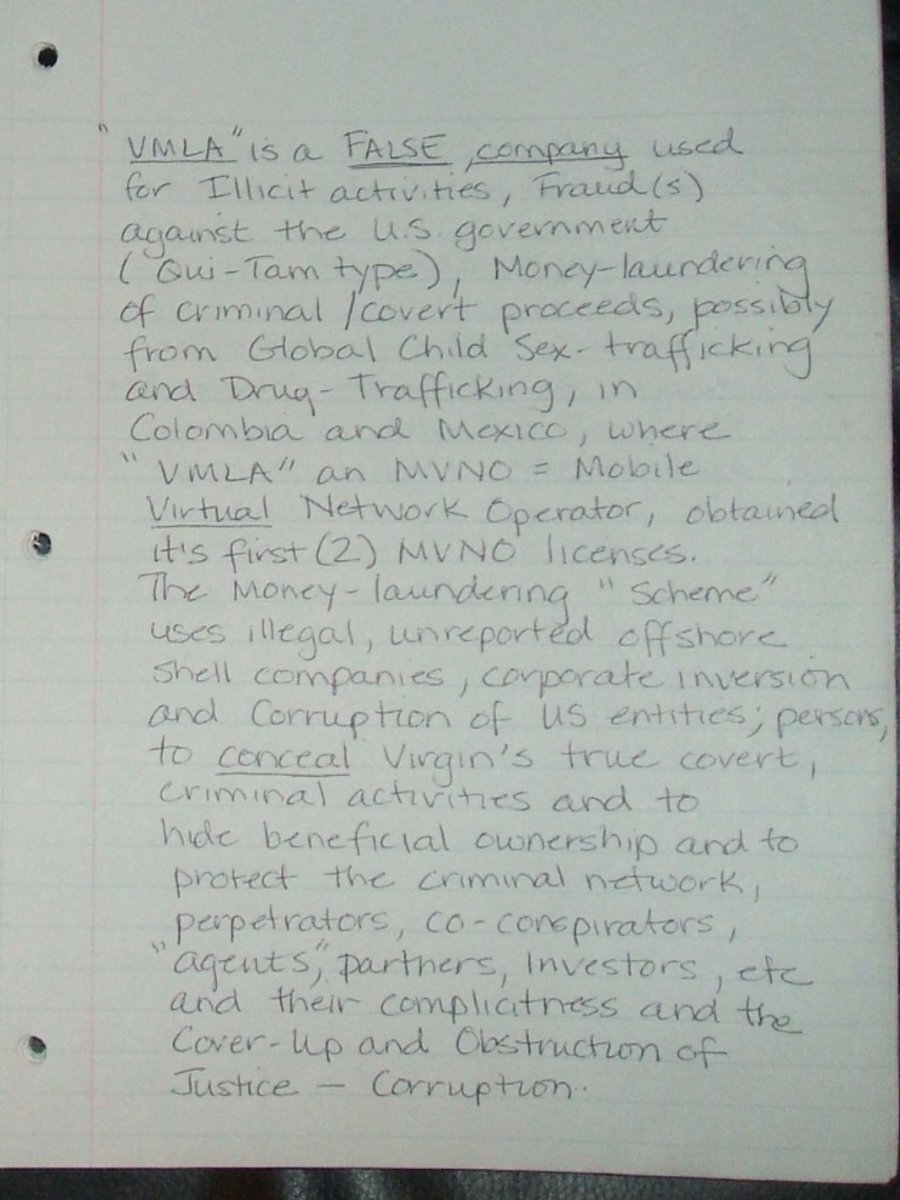 "VMLA" is a FALSE company used
for Illicit activities, Fraud(s)
against the U.S. government
("Qui-Tam type), Money-laundering
of criminal/covert proceeds, possibly
from Global Child Sex-trafficking
and Drug-Trafficking, in
Colombia and Mexico, where
"VMLA" an MVNO = Mobile
Virtual Network Operator, obtained
it's first (2) MVNO licenses.
The Money-laundering "Scheme"
uses illegal, unreported offshore
Shell companies, corporate inversion
and Corruption of US entities; persons,
to conceal Virgin's true covert,
criminal activities and to
hide beneficial ownership and to
protect the criminal network,
perpetrators, co-conspirators,
"agents", partners, Investors, etc
and their complicitness and the
Cover-Up and Obstruction of
Justice - Corruption.